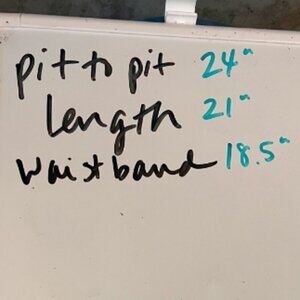 pit to pit 24"
length 21"
waistband 18.5"